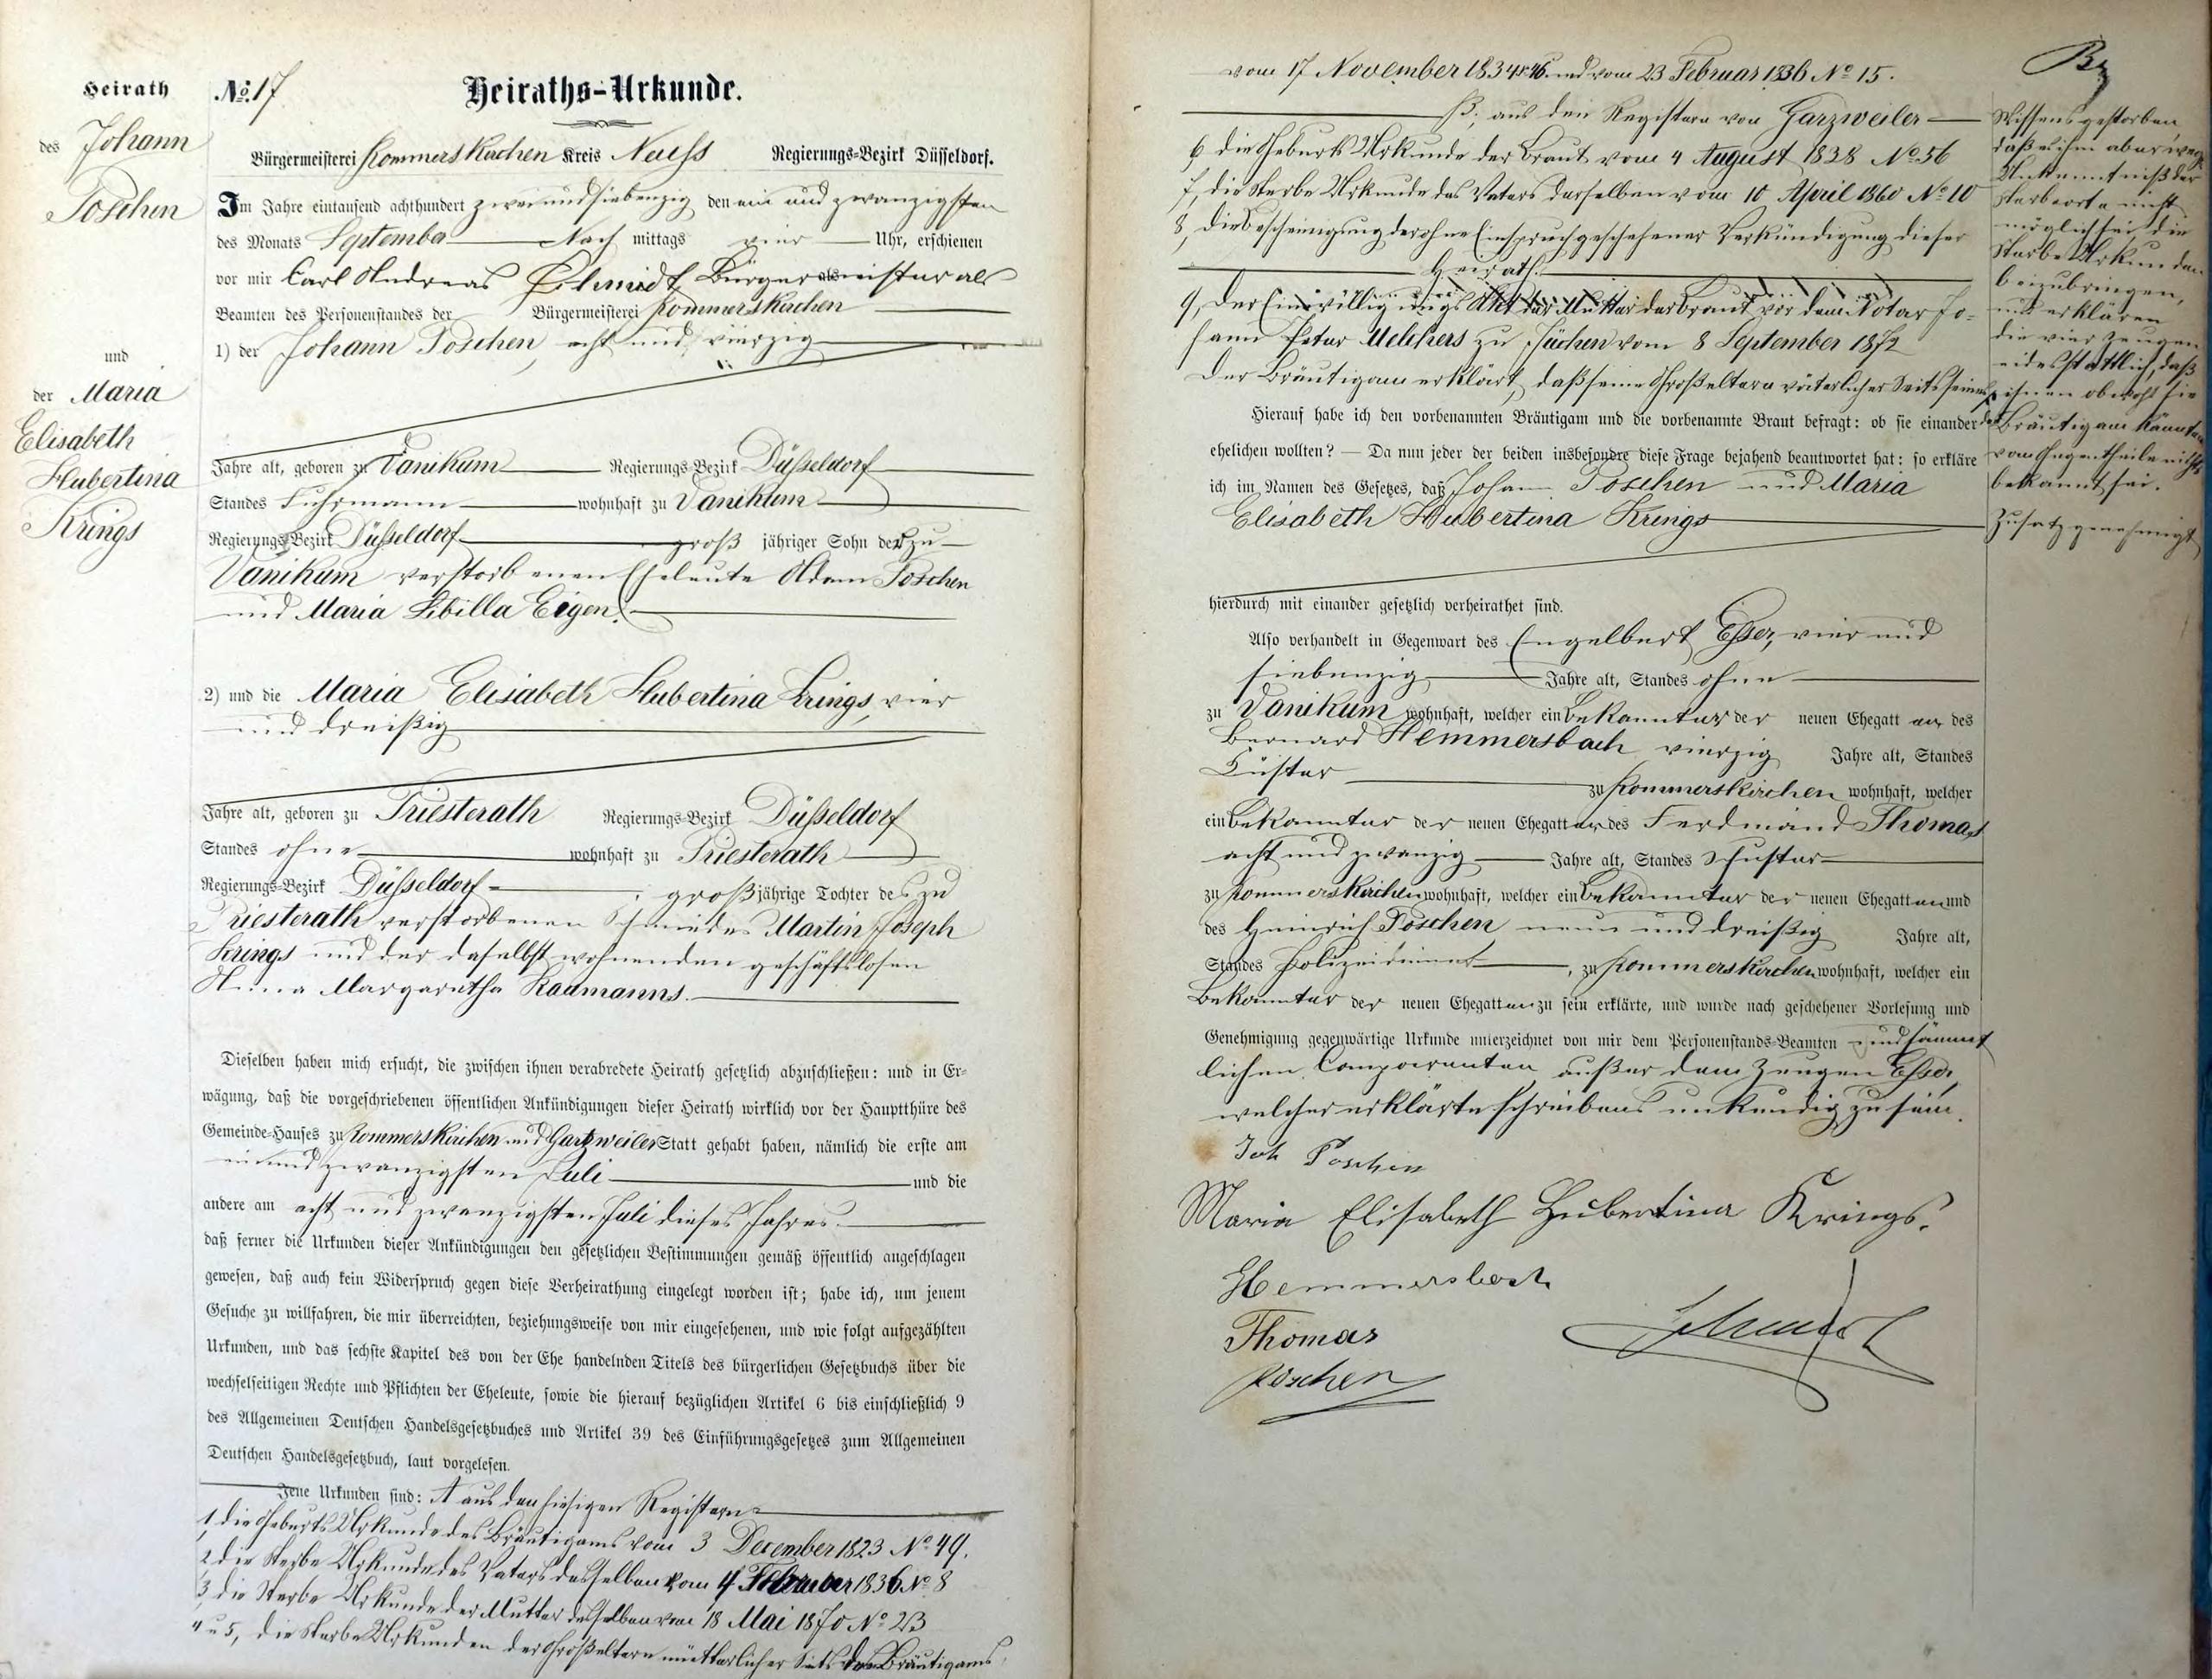 Heirath
des Johann
Poschen
und
der Maria
Elisabeth
Hubertina
Krings
No. 17 Heiraths-Urkunde.
Bürgermeisterei Rommerskirchen Kreis Neuss Regierungs-Bezirk Düsseldorf.
Im Jahre eintausend achthundert zweiundsiebenzig den ein und zwanzigsten
des Monats September Nach mittags vier Uhr, erschienen
vor mir Carl Andreas Schmidt Bürgermeister als
Beamten des Personenstandes der Bürgermeisterei Rommerskirchen
1) der Johann Poschen, acht und vierzig
Jahre alt, geboren zu Vanikum Regierungs-Bezirk Düsseldorf
Standes Fuhrmann wohnhaft zu Vanikum
Regierungs-Bezirk Düsseldorf groß jähriger Sohn der zu
Vanikum verstorbenen Eheleute Adam Poschen
und Maria Sibilla Eigen.
2) und die Maria Elisabeth Hubertina Krings, vier
und dreißig
Jahre alt, geboren zu Priesterath Regierungs-Bezirk Düsseldorf
Standes ohne wohnhaft zu Priesterath
Regierungs-Bezirk Düsseldorf großjährige Tochter des zu
Priesterath verstorbenen Schmiedes Martin Joseph
Krings und der daselbst wohnenden geschäftslosen
Anna Margaretha Radmanns.
Dieselben haben mich ersucht, die zwischen ihnen verabredete Heirath gesetzlich abzuschließen: und in Er-
wägung, daß die vorgeschriebenen öffentlichen Ankündigungen dieser Heirath wirklich vor der Hauptthüre des
Gemeinde-Hauses zu Rommerskirchen und Garzweiler Statt gehabt haben, nämlich die erste am
ein und zwanzigsten Juli und die
andere am acht und zwanzigsten Juli dieses Jahres.
daß ferner die Urkunden dieser Ankündigungen den gesetzlichen Bestimmungen gemäß öffentlich angeschlagen
gewesen, daß auch kein Widerspruch gegen diese Verheirathung eingelegt worden ist; habe ich, um jenem
Gesuche zu willfahren, die mir überreichten, beziehungsweise von mir eingesehenen, und wie folgt aufgezählten
Urkunden, und das sechste Kapitel des von der Ehe handelnden Titels des bürgerlichen Gesetzbuchs über die
wechselseitigen Rechte und Pflichten der Eheleute, sowie die hierauf bezüglichen Artikel 6 bis einschließlich 9
des Allgemeinen Deutschen Handelsgesetzbuches und Artikel 39 des Einführungsgesetzes zum Allgemeinen
Deutschen Handelsgesetzbuch, laut vorgelesen.
Jene Urkunden sind: A aus den hiesigen Registern
1, die Geburts Urkunde des Bräutigams vom 3 December 1823 No 49.
2, die Sterbe Urkunde des Vaters desselben vom 4 Februar 1836 No 8
3, die Sterbe Urkunde der Mutter desselben vom 18 Mai 1870 No 23
4 u 5, die Sterbe Urkunden der Großeltern mütterlicher Seits des Bräutigams
vom 17 November 1834 No 46 und vom 23 Februar 1836 No 15.
B; aus den Registern von Garzweiler
6 die Geburts Urkunde der Braut vom 4 August 1838 No 56
7, die Sterbe Urkunde des Vaters derselben vom 10 April 1860 No 10
8, die Bescheinigung der ohne Einspruch geschehener Verkündigung dieser
Heirath.
9, der Einwilligungs Akt der Mutter der Braut vor dem Notar Jo-
hann Peter Melchers zu Jüchen vom 8 September 1872
Der Bräutigam erklärt, daß seine Großeltern väterlicher Seits seines
Hierauf habe ich den vorbenannten Bräutigam und die vorbenannte Braut befragt: ob sie einander
ehelichen wollten? — Da nun jeder der beiden insbesondre diese Frage bejahend beantwortet hat: so erkläre
ich im Namen des Gesetzes, daß Johann Poschen und Maria
Elisabeth Hubertina Krings
hierdurch mit einander gesetzlich verheirathet sind.
Also verhandelt in Gegenwart des Engelbert Esser, vier und
siebenzig Jahre alt, Standes ohne
zu Vanikum wohnhaft, welcher ein Bekannter der neuen Ehegatten des
Bernard Hemmersbach vierzig Jahre alt, Standes
Küster zu Rommerskirchen wohnhaft, welcher
ein Bekannter der neuen Ehegatten des Ferdinand Thomas
acht und zwanzig Jahre alt, Standes Schuster
zu Rommerskirchen wohnhaft, welcher ein Bekannter der neuen Ehegatten und
des Heinrich Poschen neun und dreißig Jahre alt,
Standes Polizeidiener, zu Rommerskirchen wohnhaft, welcher ein
Bekannter der neuen Ehegatten zu sein erklärte, und wurde nach geschehener Vorlesung und
Genehmigung gegenwärtige Urkunde unterzeichnet von mir dem Personenstands-Beamten und sämmt
lichen Comparenten außer dem Zeugen Esser,
welcher erklärte Schreibens unkundig zu sein.
Joh Poschen
Maria Elisabeth Hubertina Krings.
Hemmersbach
Thomas
Poschen
Schmidt
Wissens gestorben,
daß es ihm aber wegen
Unkenntniß der
Sterbeorte nicht
möglich sei, die
Sterbe Urkunden
beizubringen,
und erklären
die vier Zeugen
eidesstattlich, daß
ihnen obwohl sie
den Bräutigam kannten
vom Gegentheile nichts
bekannt sei.
Zusatz genehmigt